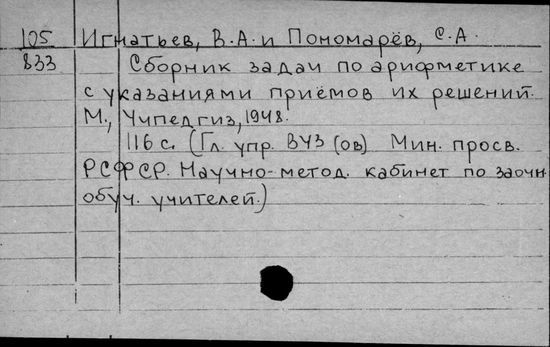 105 Игнатьев, В.А. и Пономарёв, С.А.
833 Сборник задач по арифметике
с указаниями приёмов их решений.
М., Учпедгиз, 1948.
116 с. (Гл. упр. ВУЗ (ов) Мин. просв.
РСФСР. Научно-метод. кабинет по заочн.
обуч. учителей.)